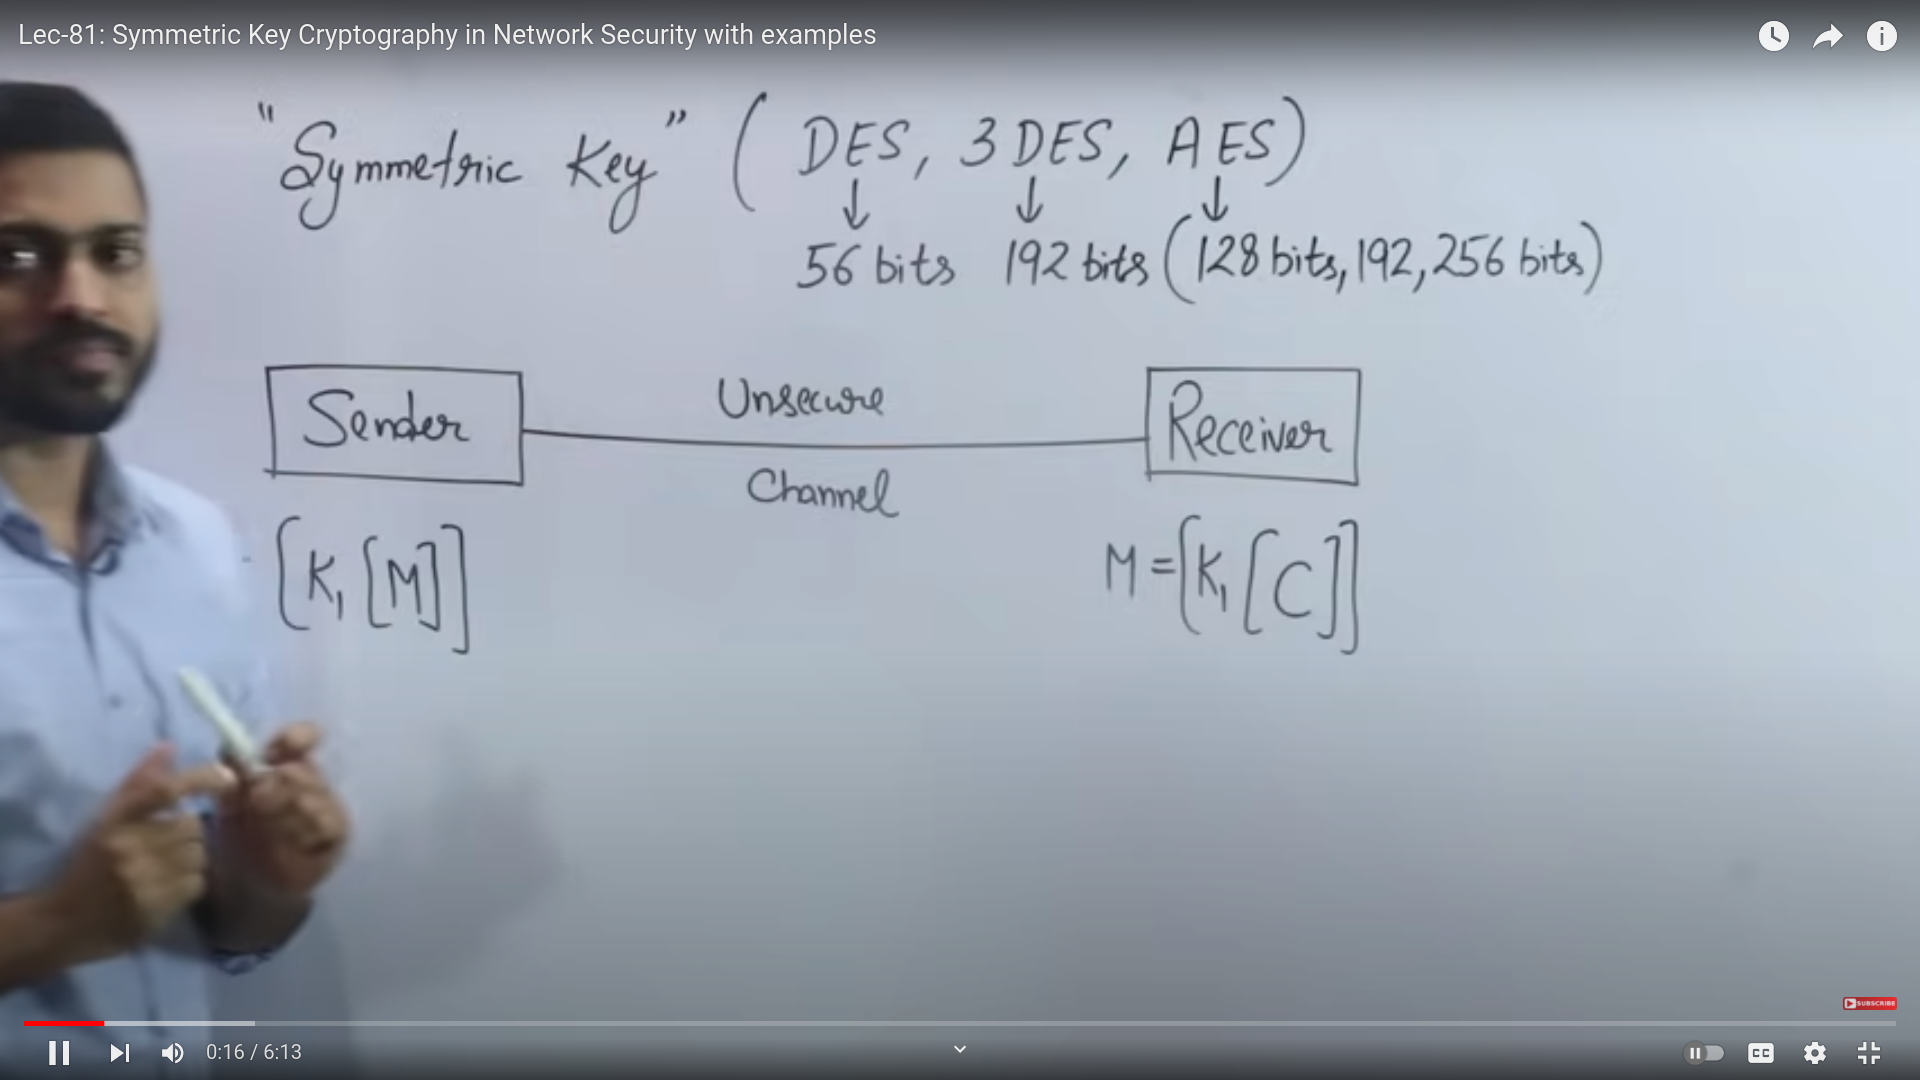 Lec-81: Symmetric Key Cryptography in Network Security with examples
"Symmetric Key" ( DES, 3 DES, AES)
↓ ↓ ↓
56 bits 192 bits (128 bits, 192, 256 bits)
Sender Unsecure Receiver
Channel
[K₁ [M]] M = [K₁ [C]]
SUBSCRIBE
0:16 / 6:13
CC